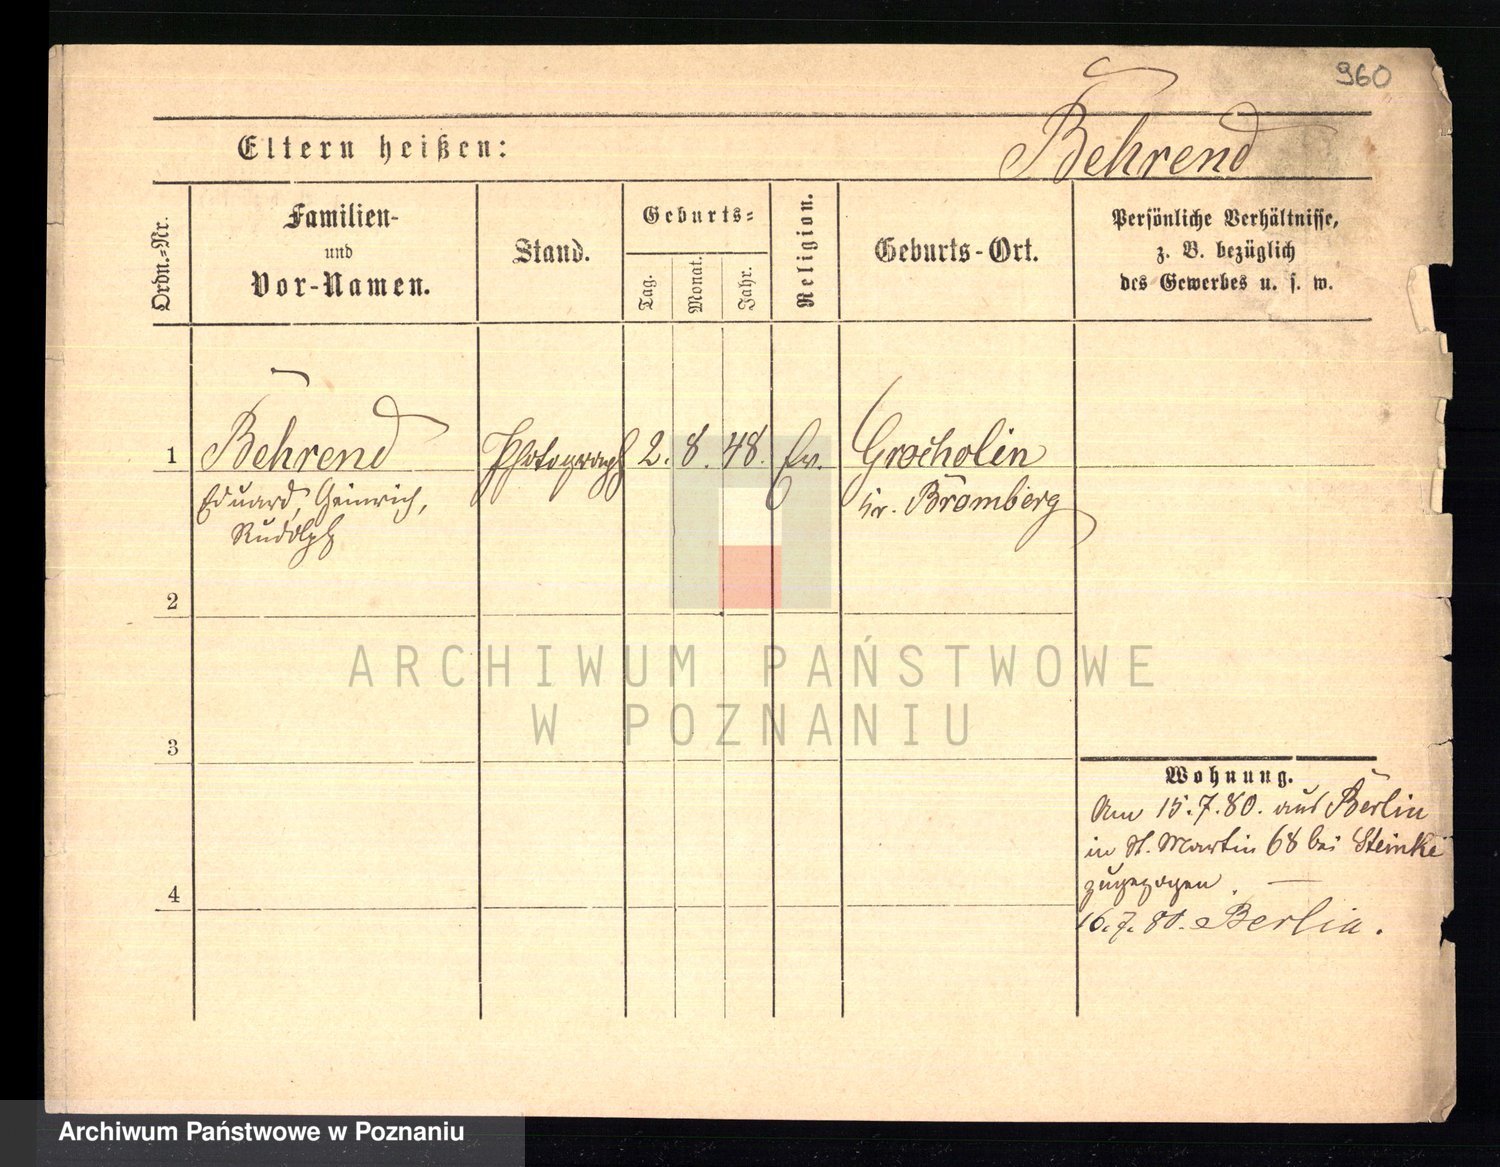 960
Eltern heißen:
Behrend
Ordn.-Nr.
Familien-
und
Vor-Namen.
Stand.
Geburts-
Tag.
Monat.
Jahr.
Religion.
Geburts-Ort.
Persönliche Verhältnisse,
z. B. bezüglich
des Gewerbes u. s. w.
1
Behrend
Eduard, Heinrich,
Rudolph
Photograph
2. 8. 48.
Ev.
Grocholin
Kr. Bromberg
2
3
4
Wohnung.
Am 15.7.80. aus Berlin
in St. Martin 68 bei Steinke
zugezogen. —
16.7.80. Berlin.
ARCHIWUM PAŃSTWOWE
W POZNANIU
Archiwum Państwowe w Poznaniu